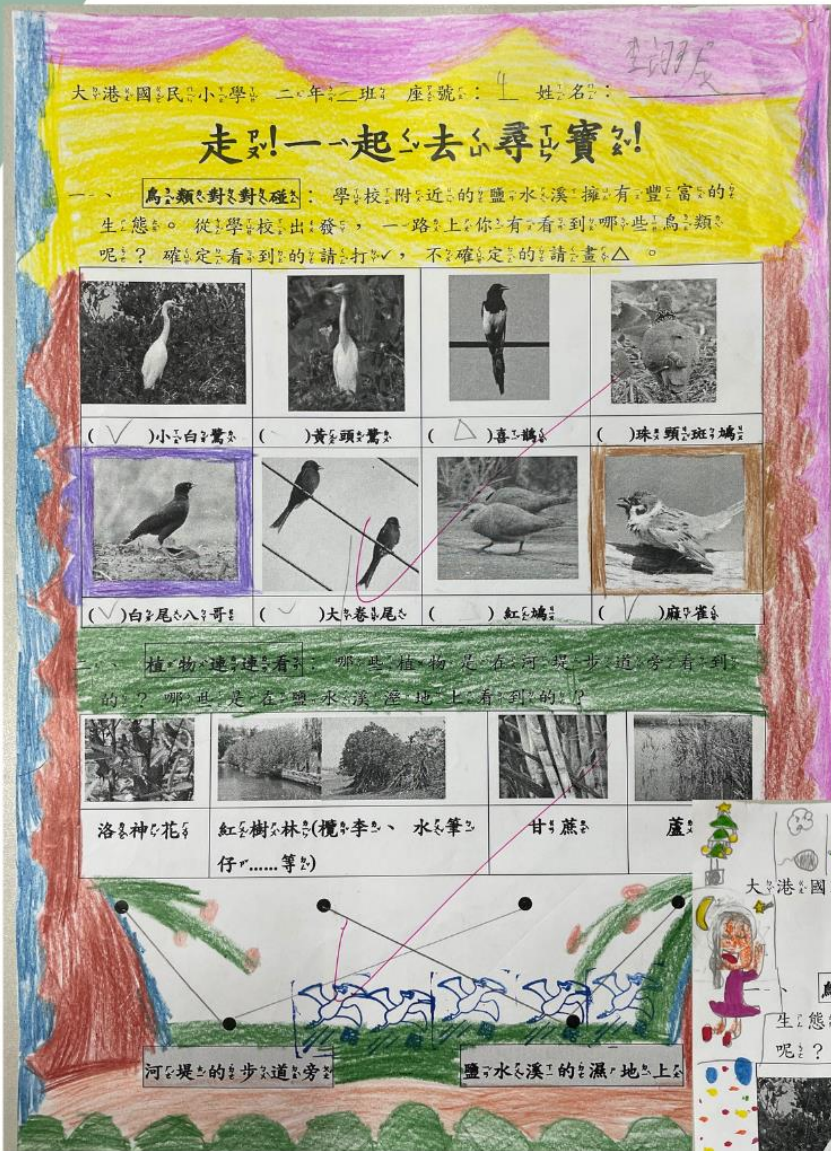 大港國民小學 二年二班 座號：4 姓名：李
走！一起去尋寶！
一、鳥類對對碰：學校附近的鹽水溪擁有豐富的
生態。從學校出發，一路上你有看到哪些鳥類
呢？確定看到的請打✓，不確定的請畫△。
(✓)小白鷺 ( )黃頭鷺 (△)喜鵲 ( )珠頸斑鳩
(✓)白尾八哥 (✓)大卷尾 ( )紅鳩 (✓)麻雀
二、植物連連看：哪些植物是在河堤步道旁看到
的？哪些是在鹽水溪溼地上看到的？
洛神花 紅樹林(欖李、水筆 甘蔗 蘆
仔……等)
河堤的步道旁 鹽水溪的濕地上
大港國
、
生態
呢？